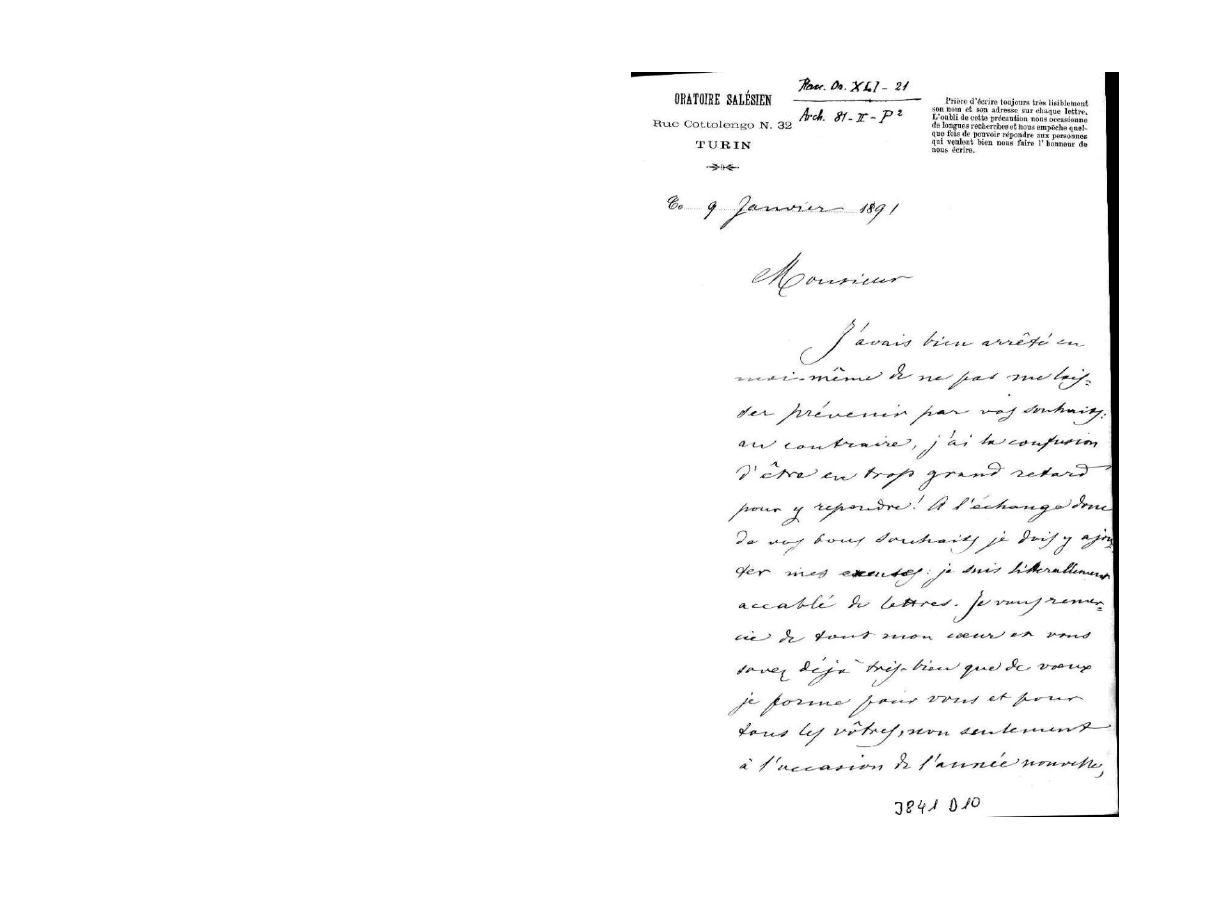 ORATOIRE SALÉSIEN
Rue Cottolengo N. 32
TURIN
Arch. 81-II-P²
Prière d'écrire toujours très lisiblement
son nom et son adresse sur chaque lettre.
L'oubli de cette précaution nous occasionne
de longues recherches et nous empêche quel-
que fois de pouvoir répondre aux personnes
qui veulent bien nous faire l'honneur de
nous écrire.
9 Janvier 1891
Monsieur
J'avais bien arrêté en
moi-même de ne pas me lais-
ser prévenir par vos souhaits:
au contraire, j'ai la confusion
d'être en trop grand retard
pour y repondre! A l'échange donc
de vos bons souhaits je dois y ajou-
ter mes excuses: je suis litterallement
accablé de lettres. Je vous remer-
cie de tout mon cœur et vous
savez déjà très-bien que de vœux
je forme pour vous et pour
tous les vôtres, non seulement
à l'occasion de l'année nouvelle,
3841 D10